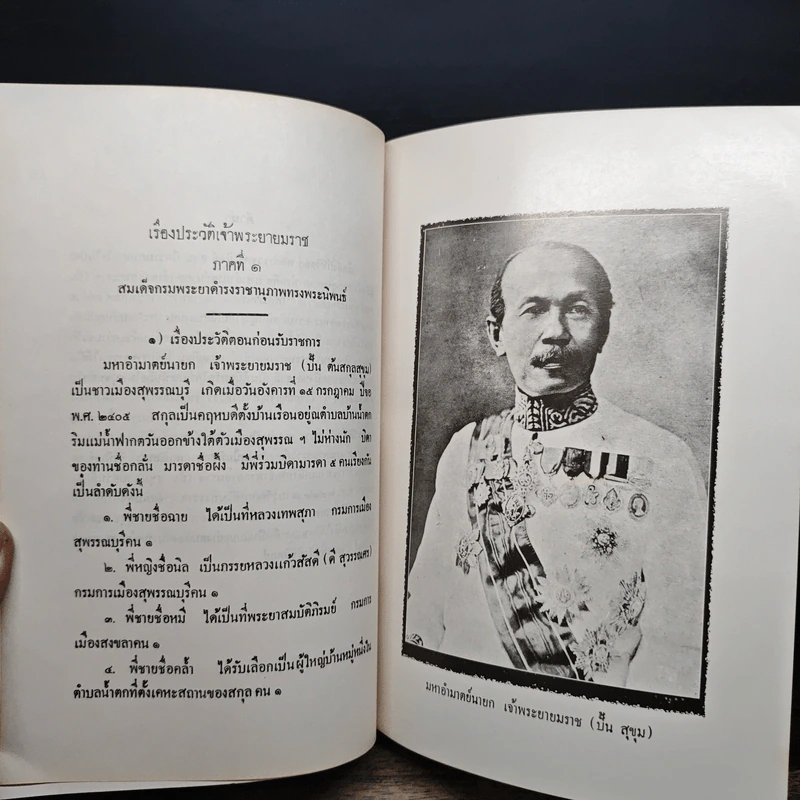 เรื่องประวัติเจ้าพระยายมราช
ภาคที่ ๑
สมเด็จกรมพระยาดำรงราชานุภาพทรงพระนิพนธ์
๑) เรื่องประวัติตอนก่อนรับราชการ
มหาอำมาตย์นายก เจ้าพระยายมราช (ปั้น ต้นสกุลสุขุม)
เป็นชาวเมืองสุพรรณบุรี เกิดเมื่อวันอังคารที่ ๑๕ กรกฎาคม ปีจอ
พ.ศ. ๒๔๐๕ สกุลเป็นคฤหบดีตั้งบ้านเรือนอยู่ณตำบลบ้านน้ำตก
ริมแม่น้ำฟากตวันออกข้างใต้ตัวเมืองสุพรรณ ฯ ไม่ห่างนัก บิดา
ของท่านชื่อกลั่น มารดาชื่อผึ้ง มีพี่ร่วมบิดามารดา ๕ คนเรียงกัน
เป็นลำดับดังนี้
๑. พี่ชายชื่อฉาย ได้เป็นที่หลวงเทพสุภา กรมการเมือง
สุพรรณบุรีคน ๑
๒. พี่หญิงชื่อนิล เป็นภรรยหลวงแก้วสัสดี (ดี สุวรรณศร)
กรมการเมืองสุพรรณบุรีคน ๑
๓. พี่ชายชื่อหมี ได้เป็นที่พระยาสมบัติภิรมย์ กรมการ
เมืองสงขลาคน ๑
๔. พี่ชายชื่อคล้ำ ได้รับเลือกเป็นผู้ใหญ่บ้านหมู่หนึ่งใน
ตำบลน้ำตกที่ตั้งเคหะสถานของสกุล คน ๑
มหาอำมาตย์นายก เจ้าพระยายมราช (ปั้น สุขุม)